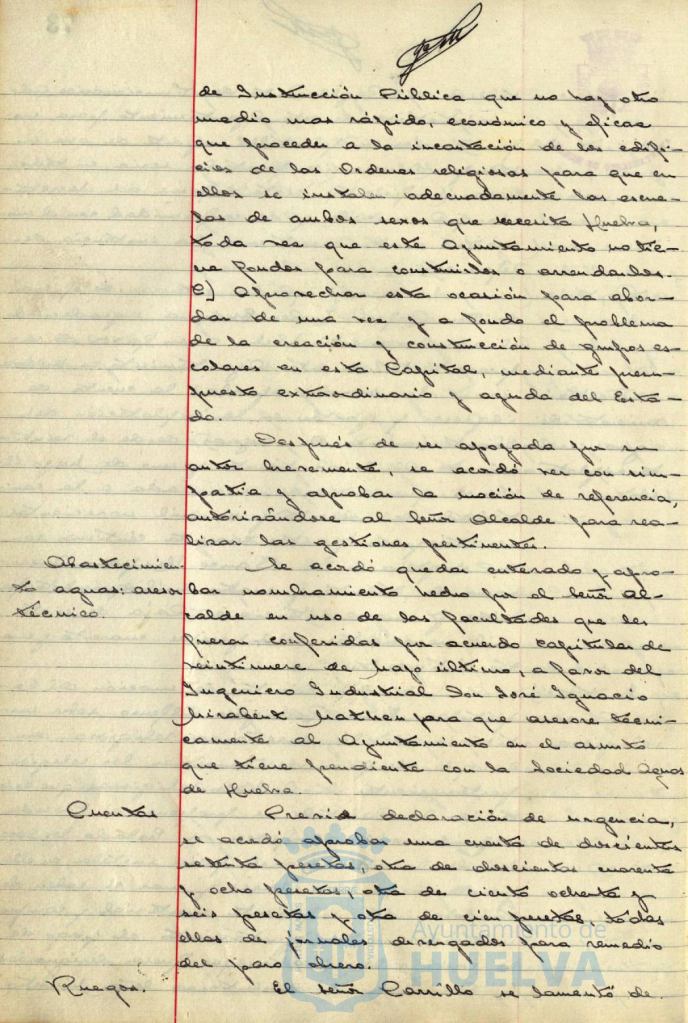 de Instrucción Pública que no hay otro
medio mas rápido, económico y eficaz
que proceder a la incautación de los edifi-
cios de las Ordenes religiosas para que en
ellos se instalen adecuadamente las escue-
las de ambos sexos que necesita Huelva,
toda vez que este Ayuntamiento no tie-
ne fondos para construirlos o arrendarlos.
C) Aprovechar esta ocasión para abor-
dar de una vez y a fondo el problema
de la creación y construcción de grupos es-
colares en esta Capital, mediante presu-
puesto extraordinario y ayuda del Esta-
do.
Después de ser apoyada por su
autor brevemente, se acordó ver con sim-
patía y aprobar la moción de referencia,
autorizándose al Señor Alcalde para rea-
lizar las gestiones pertinentes.
Abastecimien-
to aguas: asesor
técnico.
Se acordó quedar enterado y apro-
bar nombramiento hecho por el Señor Al-
calde en uso de las facultades que les
fueron conferidas por acuerdo capitular de
veintinueve de Mayo último, a favor del
Ingeniero Industrial Don José Ignacio
Mirabent para que asesore técni-
camente al Ayuntamiento en el asunto
que tiene pendiente con la Sociedad Aguas
de Huelva.
Cuentas
Previa declaración de urgencia,
se acordó aprobar una cuenta de doscientas
setenta pesetas, otra de doscientas cuarenta
y ocho pesetas, otra de ciento ochenta y
seis pesetas y otra de cien pesetas, todas
ellas de jornales devengados para remedio
del paro obrero.
Ruegos.
El Señor Carrillo se lamentó de
Ayuntamiento de
HUELVA